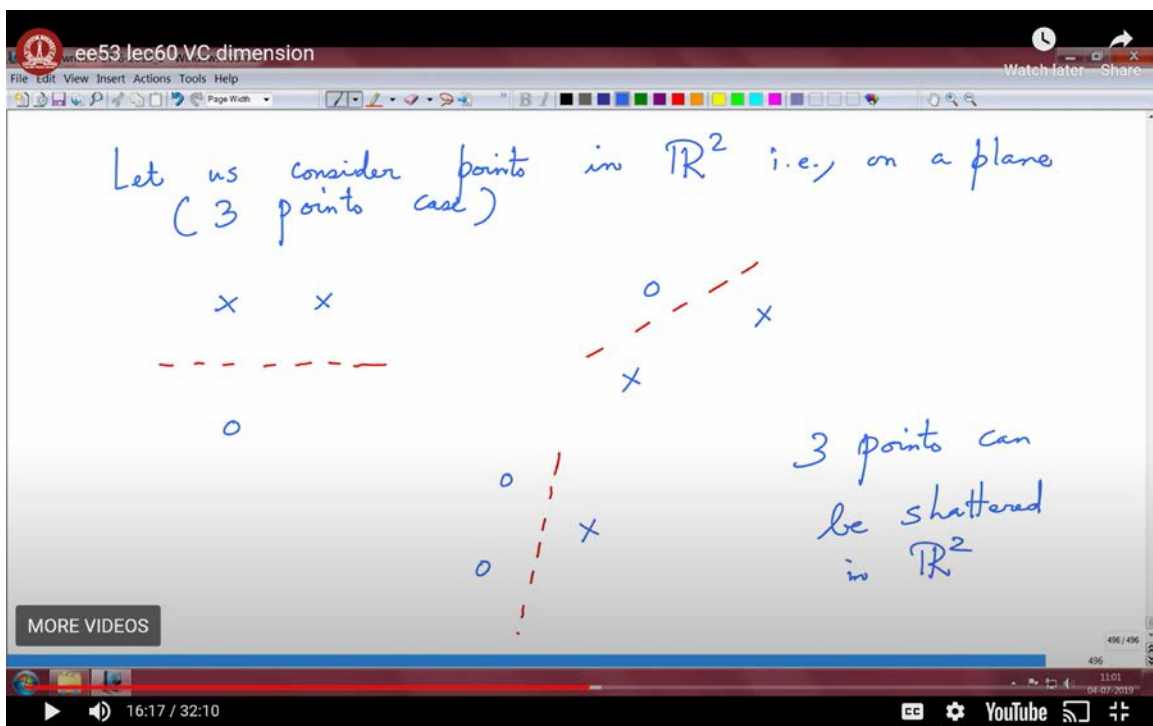 ee53 lec60 VC dimension
Watch later Share
File Edit View Insert Actions Tools Help
Page Width
Let us consider points in ℝ² i.e., on a plane
(3 points case)
x x
o
o
x
x
o
x
o
3 points can
be shattered
in ℝ²
MORE VIDEOS
496/496
496
11:01
04-07-2019
16:17 / 32:10
CC
YouTube